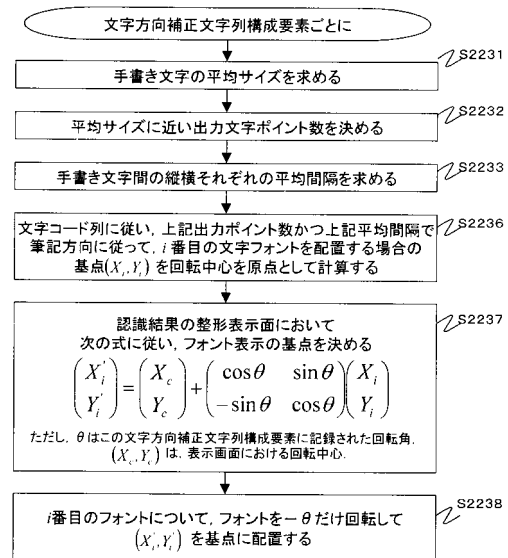 文字方向補正文字列構成要素ごとに
S2231
手書き文字の平均サイズを求める
S2232
平均サイズに近い出力文字ポイント数を決める
S2233
手書き文字間の縦横それぞれの平均間隔を求める
S2236
文字コード列に従い，上記出力ポイント数かつ上記平均間隔で
筆記方向に従って，i番目の文字フォントを配置する場合の
基点(X_i,Y_i)を回転中心を原点として計算する
S2237
認識結果の整形表示面において
次の式に従い，フォント表示の基点を決める
(X_i' Y_i') = (X_c Y_c) + (cosθ sinθ -sinθ cosθ)(X_i Y_i)
ただし，θはこの文字方向補正文字列構成要素に記録された回転角，
(X_c,Y_c)は，表示画面における回転中心．
S2238
i番目のフォントについて，フォントを－θだけ回転して
(X_i',Y_i')を基点に配置する